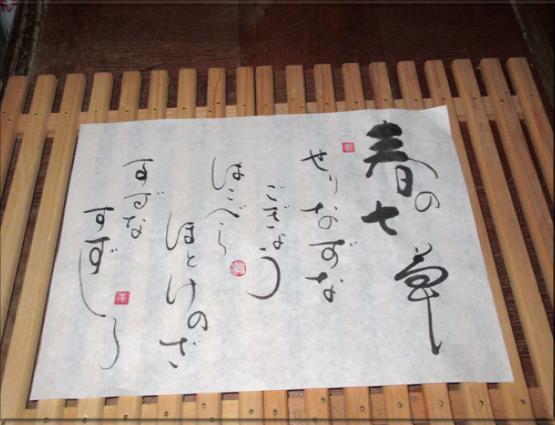 春の七草
せりなずな
ごぎょう
はこべら
ほとけのざ
すずな
すずしろ